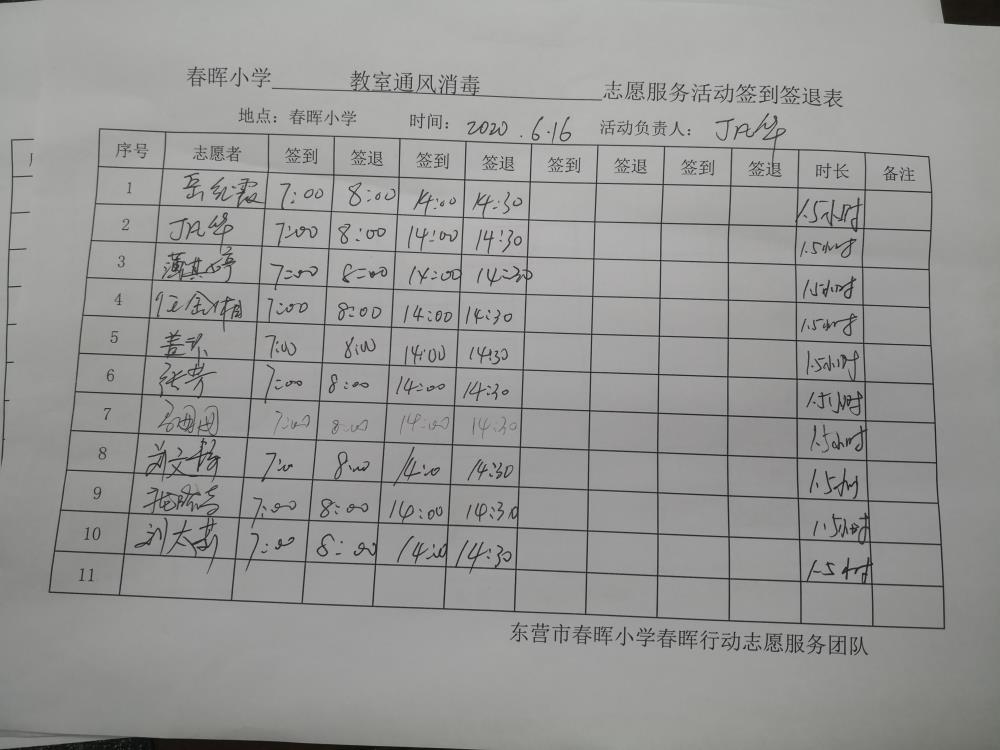 春晖小学 教室通风消毒 志愿服务活动签到签退表
地点：春晖小学 时间：2020.6.16 活动负责人：
序号 志愿者 签到 签退 签到 签退 签到 签退 签到 签退 时长 备注
1 岳红霞 7:00 8:00 14:00 14:30 1.5小时
2 7:00 8:00 14:00 14:30 1.5小时
3 薄其婷 7:00 8:00 14:00 14:30 1.5小时
4 7:00 8:00 14:00 14:30 1.5小时
5 7:00 8:00 14:00 14:30 1.5小时
6 张芳 7:00 8:00 14:00 14:30 1.5小时
7 7:00 8:00 14:00 14:30 1.5小时
8 7:00 8:00 14:00 14:30 1.5小时
9 7:00 8:00 14:00 14:30 1.5小时
10 7:00 8:00 14:00 14:30 1.5小时
11
东营市春晖小学春晖行动志愿服务团队